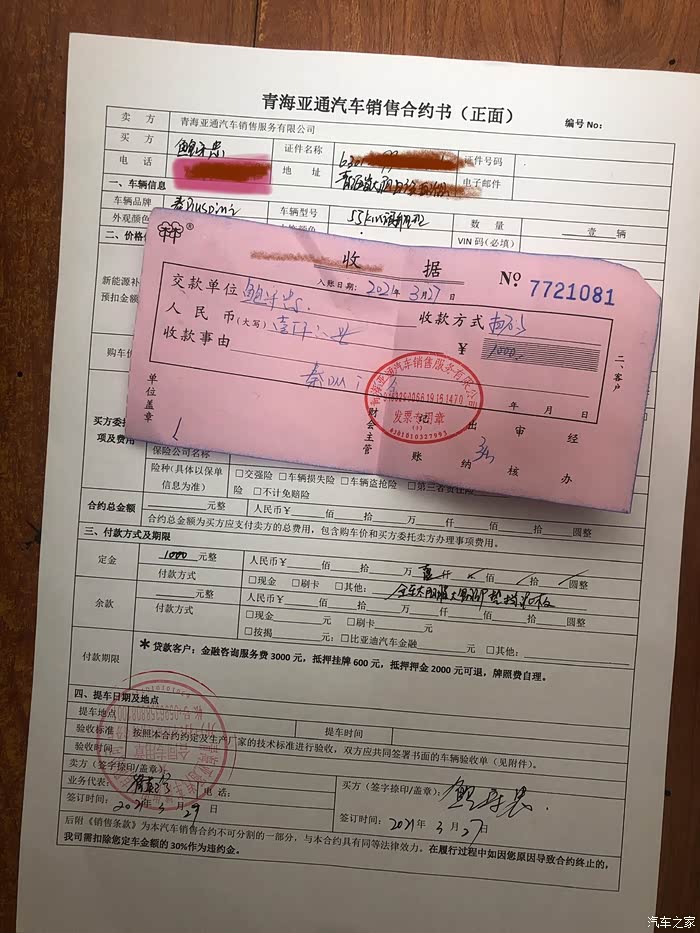 青海亚通汽车销售合约书（正面）
编号 No：
卖 方 青海亚通汽车销售服务有限公司
买 方 证件名称 证件号码
电 话 地 址 电子邮件
一、车辆信息
车辆品牌 车辆型号 55km 数 量 壹 辆
外观颜色 VIN 码(必填)
二、价格
收 据
入账日期：2021年3月27日
№ 7721081
交款单位 收款方式
人民币(大写) ￥ 1000
收款事由 秦DM i
二、客户
年 月 日
单位盖章 财会主管 记账 出纳 审核 经办
青海亚通汽车销售服务有限公司
发票专用章
新能源补
预扣金额
购车价
买方委托
项及费用
保险公司名称
险种(具体以保单信息为准) □交强险 □车辆损失险 □车辆盗抢险 □第三者责任险
□不计免赔险
合约总金额 元整 人民币￥ 佰 拾 万 仟 佰 拾 圆整
合约总金额为买方应支付卖方的总费用，包含购车价和买方委托卖方办理事项费用。
三、付款方式及期限
定金 1000 元整 人民币￥ 佰 拾 万 壹 仟 佰 拾 圆整
付款方式 □现金 □刷卡 □其他：
余款 元整 人民币￥ 佰 拾 万 仟 佰 拾 圆整
付款方式 □现金 元 □刷卡 元
□按揭 元：□比亚迪汽车金融 元 □其他：
付款期限 *贷款客户：金融咨询服务费 3000 元，抵押挂牌 600 元，抵押押金 2000 元可退，牌照费自理。
四、提车日期及地点
提车地点 提车时间
验收标准 按照本合约约定及生产厂家的技术标准进行验收，双方应共同签署书面的车辆验收单（见附件）。
验收时间
卖方（签字捺印/盖章）： 买方（签字捺印/盖章）：
业务代表： 电 话：
签订时间：2021年3月27日 签订时间：2021年3月27日
合同专用章
后附《销售条款》为本汽车销售合约不可分割的一部分，与本合约具有同等法律效力。在履行过程中如因您原因导致合约终止的，
我司需扣除您定车金额的 30%作为违约金。
汽车之家